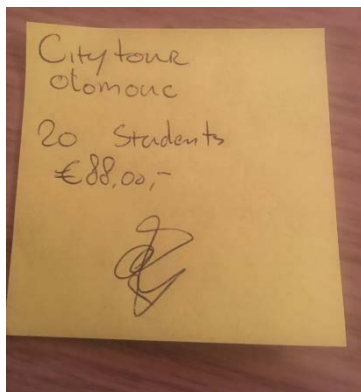 City tour
Olomouc
20 Students
€88,00,-